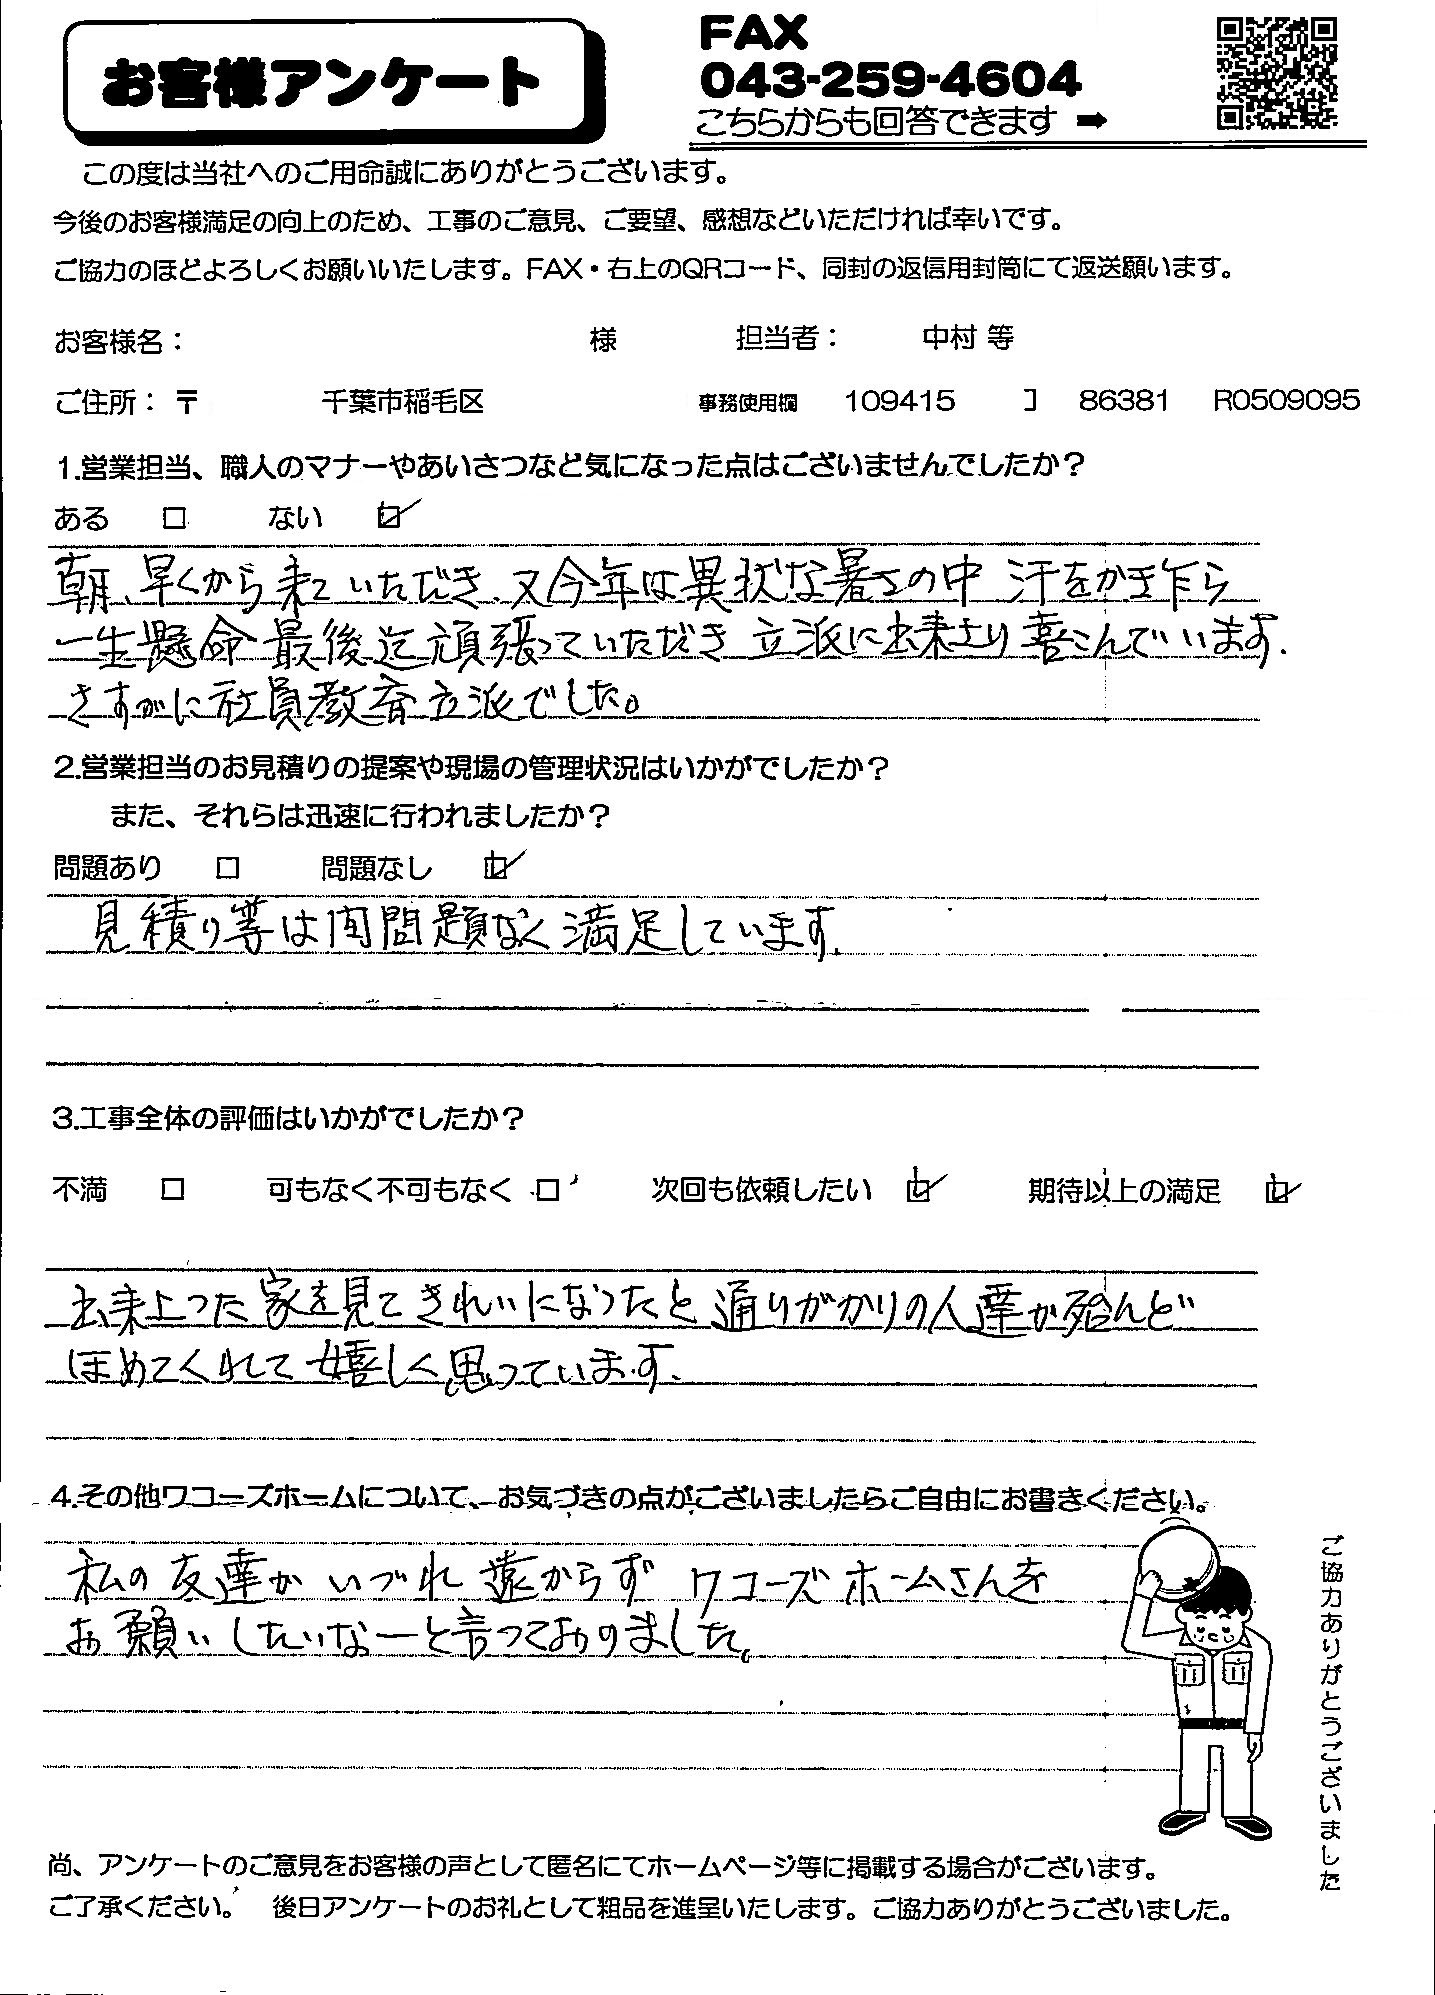 お客様アンケート
FAX
043-259-4604
こちらからも回答できます ➡
この度は当社へのご用命誠にありがとうございます。
今後のお客様満足の向上のため、工事のご意見、ご要望、感想などいただければ幸いです。
ご協力のほどよろしくお願いいたします。FAX・右上のQRコード、同封の返信用封筒にて返送願います。
お客様名： 様 担当者： 中村 等
ご住所：〒 千葉市稲毛区 事務使用欄 109415 ］ 86381 R0509095
1.営業担当、職人のマナーやあいさつなど気になった点はございませんでしたか？
ある □ ない ☑
朝、早くから来ていただき、又今年は異状な暑さの中 汗をかき乍ら
一生懸命最後迄頑張っていただき 立派に出来上り喜こんでいます.
さすがに社員教育立派でした。
2.営業担当のお見積りの提案や現場の管理状況はいかがでしたか？
また、それらは迅速に行われましたか？
問題あり □ 問題なし ☑
見積り等は間問題なく満足しています.
3.工事全体の評価はいかがでしたか？
不満 □ 可もなく不可もなく □ 次回も依頼したい ☑ 期待以上の満足 ☑
出来上った家を見てきれいになったと通りがかりの人達が殆んど
ほめてくれて嬉しく思っています.
4.その他ワコーズホームについて、お気づきの点がございましたらご自由にお書きください。
私の友達が いづれ 遠からず ワコーズホームさんを
お願いしたいなーと言っておりました。
ご協力ありがとうございました
尚、アンケートのご意見をお客様の声として匿名にてホームページ等に掲載する場合がございます。
ご了承ください。 後日アンケートのお礼として粗品を進呈いたします。ご協力ありがとうございました。